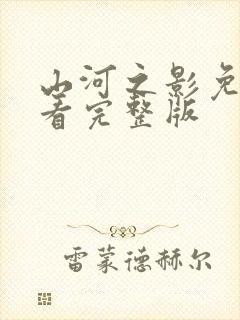 山河之影免
着完整版
雷蒙德赫尔